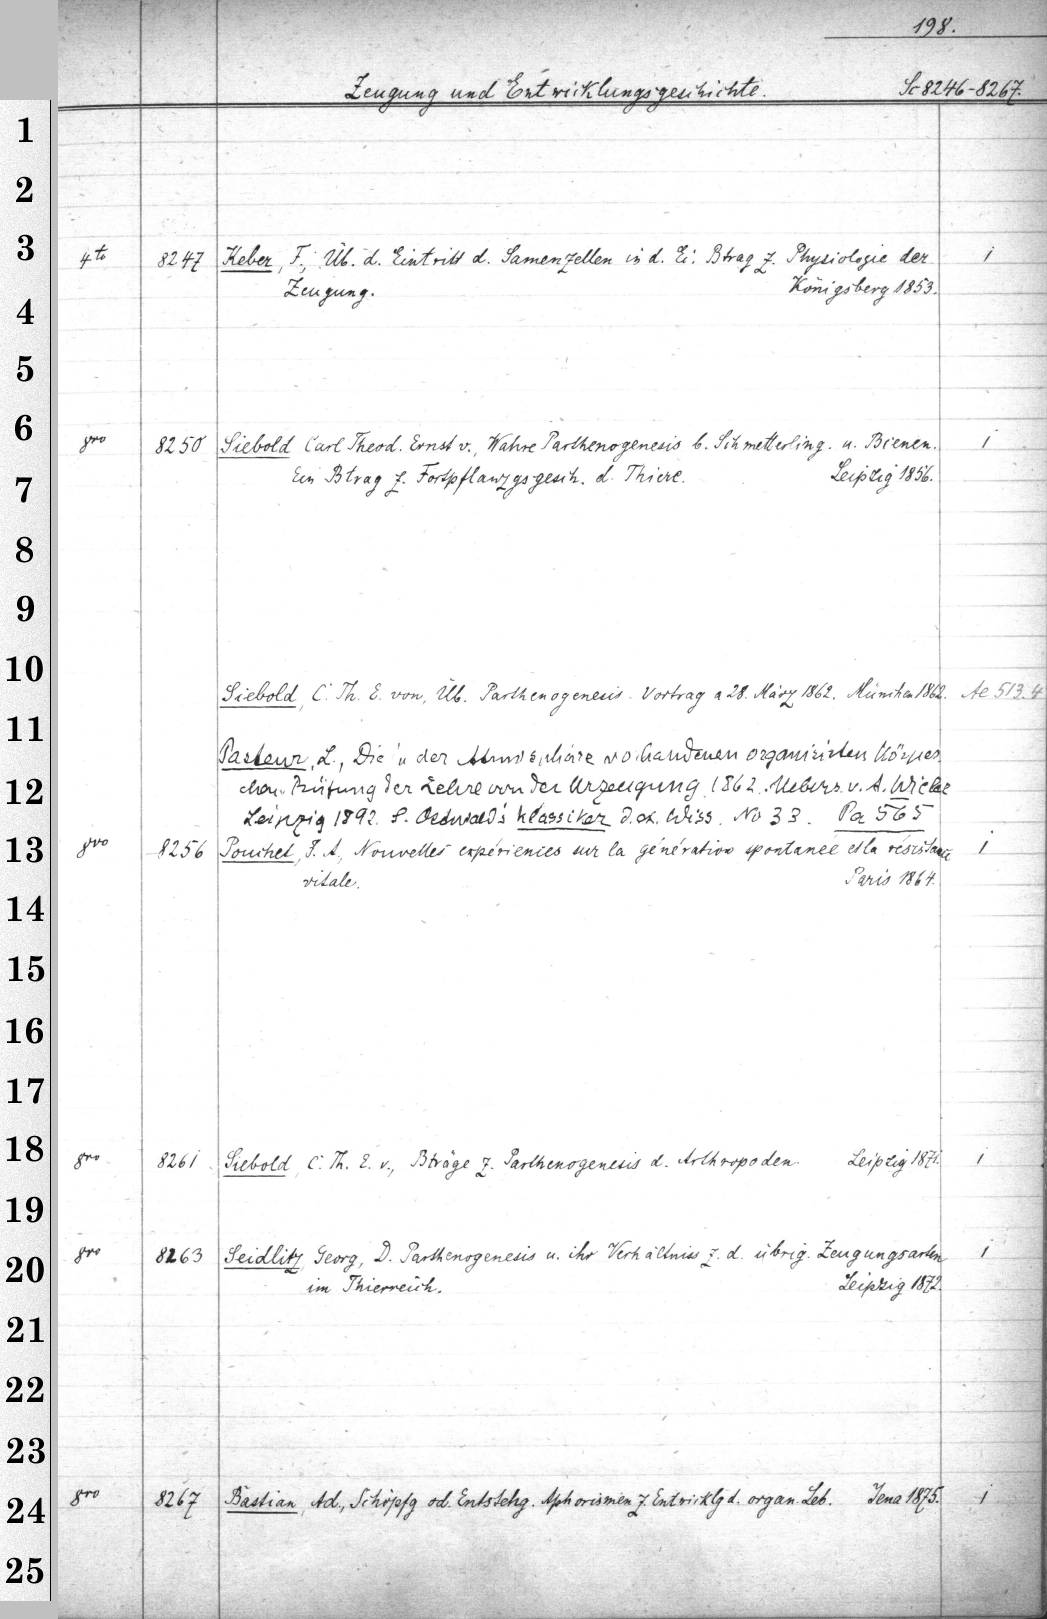 198.
Zeugung und Entwicklungsgeschichte. Sc 8246-8267.
1
2
3 4to 8247 Keber, F., Üb. d. Eintritt d. Samenzellen in d. Ei. Btrag z. Physiologie der 1
Zeugung. Königsberg 1853.
4
5
6 8vo 8250 Siebold Carl Theod. Ernst v., Wahre Parthenogenesis b. Schmetterling. u. Bienen. 1
7 Ein Btrag z. Fortpflanzgsgesch. d. Thiere. Leipzig 1856.
8
9
10 Siebold, C. Th. E. von, Üb. Parthenogenesis. Vortrag a 28. März 1862. München 1862. Ae 513.4
11 Pasteur, L., Die in der Atmosphäre vorhandenen organisirten Körper
12 Prüfung der Lehre von der Urzeugung 1862. Uebers. v. A. Wieler
Leipzig 1892. S. Ostwald's Klassiker d. ex. Wiss. No 33. Pa 565
13 8vo 8256 Pouchet, F. A., Nouvelles expériences sur la génération spontanée et la résistance 1
vitale. Paris 1864.
14
15
16
17
18 8vo 8261 Siebold, C. Th. E. v., Bträge z. Parthenogenesis d. Arthropoden. Leipzig 1871. 1
19
20 8vo 8263 Seidlitz, Georg, D. Parthenogenesis u. ihr Verhältniss z. d. übrig. Zeugungsarten 1
im Thierreich. Leipzig 1872.
21
22
23
24 8vo 8267 Bastian, Ad., Schöpfg od. Entstehg. Aphorismen z. Entwicklg d. organ. Leb. Jena 1875. 1
25